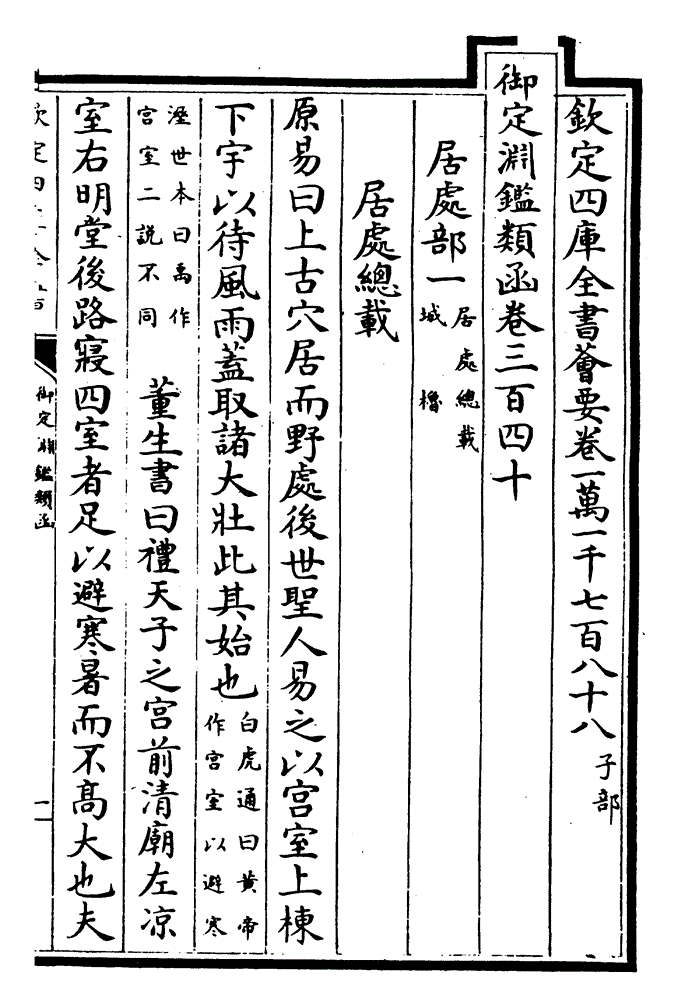 欽定四庫全書薈要卷一萬一千七百八十八 子部
御定淵鑑類函卷三百四十
居處部一 居處總載 城 櫓
居處總載
原易曰上古穴居而野處後世聖人易之以宫室上棟
下宇以待風雨蓋取諸大壯此其始也 白虎通曰黄帝作宫室以避寒
溼世本曰禹作宫室二說不同 董生書曰禮天子之宫前清廟左凉
室右明堂後路寢四室者足以避寒暑而不髙大也夫
御定淵鑑類函
一